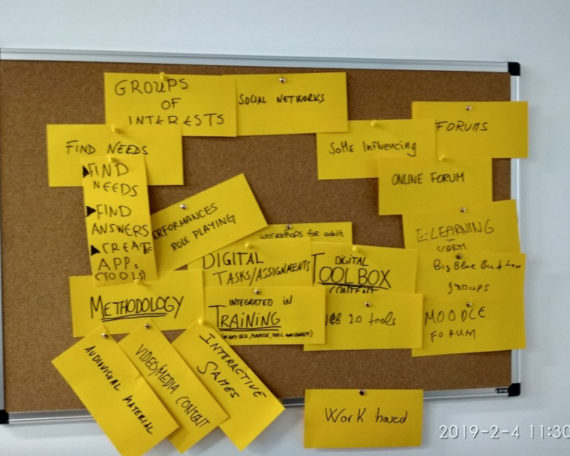 GROUPS
OF
INTERESTS
SOCIAL NETWORKS
FORUMS
FIND NEEDS
SoMe Influencing
FIND
NEEDS
FIND
ANSWERS
CREATE
APPs
(TOOLS)
ONLINE FORUM
PERFORMANCES
ROLE PLAYING
workshops for adult
E-LEARNING
DIGITAL
TASKS/ASSIGNMENTS
DIGITAL
TOOLBOX
CONTENT
Big Blue Button
groups
METHODOLOGY
INTEGRATED IN
TRAINING
WEB 2.0 tools
MOODLE
FORUM
AUDIOVISUAL MATERIAL
VIDEO/MEDIA CONTENT
INTERACTIVE
GAMES
Work hard
2019-2-4 11:30